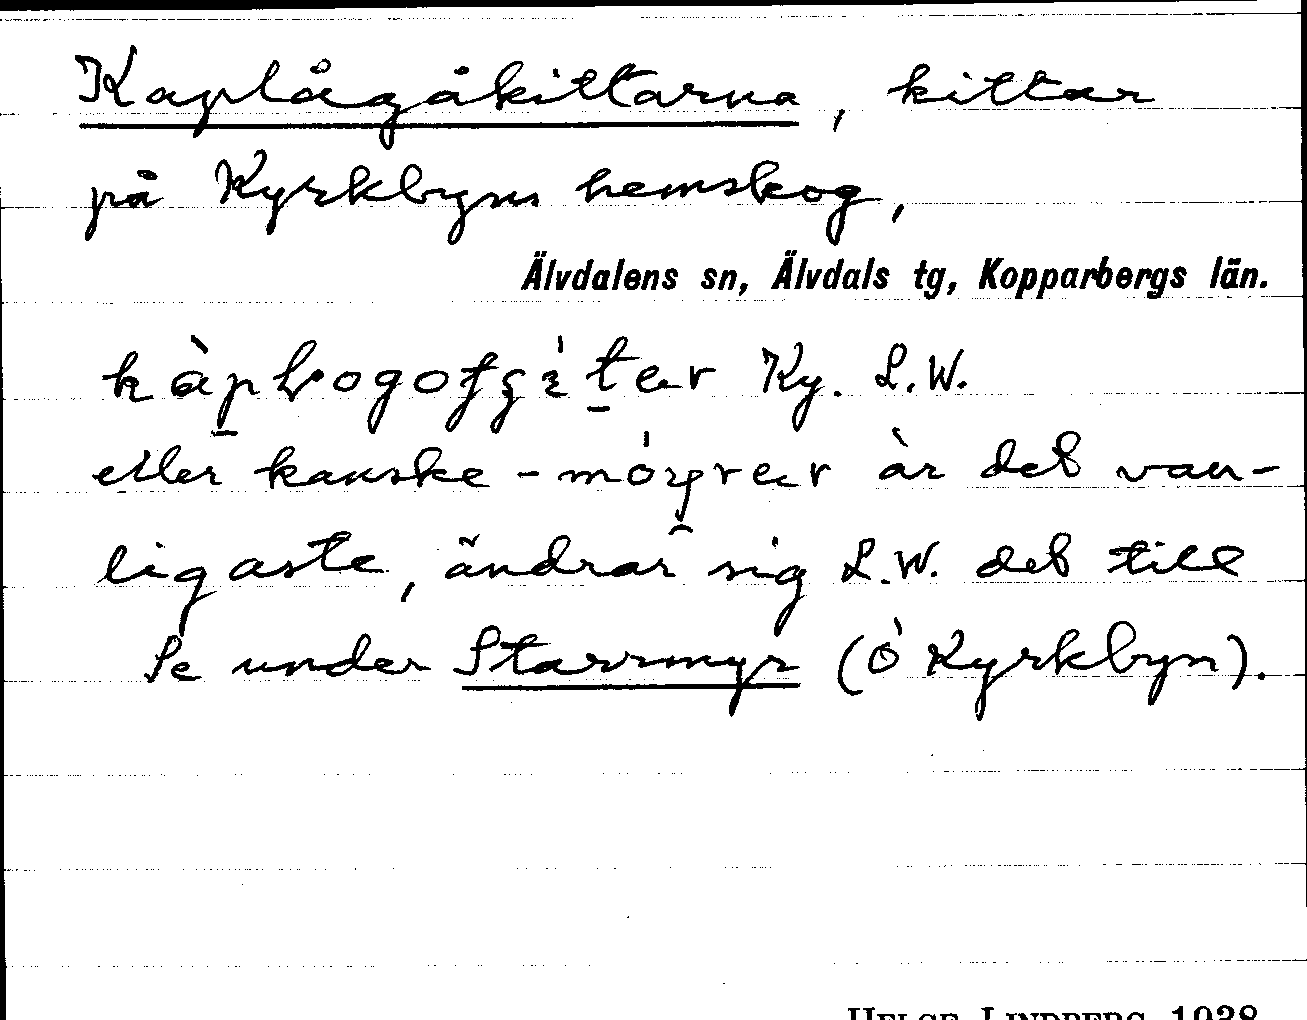 Kaplågåkittarna, kittar
på Kyrkbyns hemskog,
Älvdalens sn, Älvdals tg, Kopparbergs län.
Ky. L.W.
eller kanske - är det van-
ligaste, ändrar sig L.W. det till
Se under Starrmyr (Ö Kyrkbyn).
HELGE LINDBERG 1938